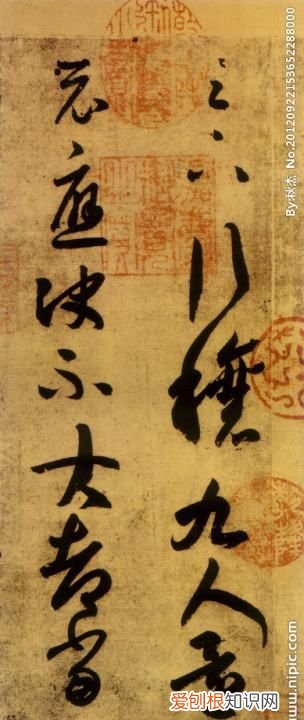 足下行穰九人還
示應決不大都當
By:秋杰 No.20120922153652288000
www.nipic.com
爱刨根知识网